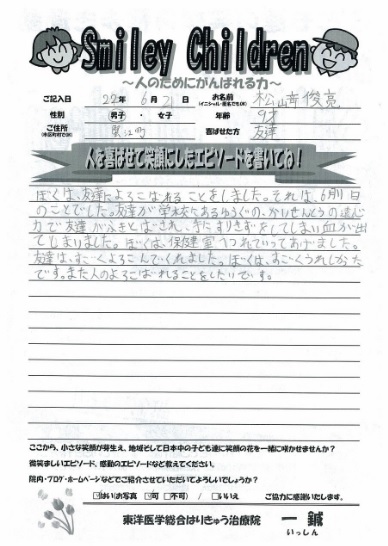 Smiley Children
〜人のためにがんばれる力〜
ご記入日 22年 6月 21日 お名前 (イニシャル・匿名でもOK) 松山 俊亮
性別 男子 ・ 女子 年齢 9才
ご住所 (市区町村でOK) 喜ばせた方 友達
人を喜ばせて笑顔にしたエピソードを書いてね!
ぼくは、友達によろこばれることをしました。それは、6月11日
のことでした。友達が学校にあるゆうぐの、かいせんとうの遠心
力で友達がふきとばされ、手にすりきずをしてしまい血が出
てしまいました。ぼくは、保健室へつれていってあげました。
友達は、すごくよろこんでくれました。ぼくは、すごくうれしかった
です。また人のよろこばれることをしたいです。
ここから、小さな笑顔が芽生え、地域そして日本中の子ども達に笑顔の花を一緒に咲かせませんか?
微笑ましいエピソード、感動のエピソードなど教えてください。
院内・ブログ・ホームページなどでご紹介させていただいてよろしいでしょうか?
はい(お写真 可 不可) / いいえ ご協力に感謝いたします。
東洋医学総合はりきゅう治療院 一鍼
いっしん